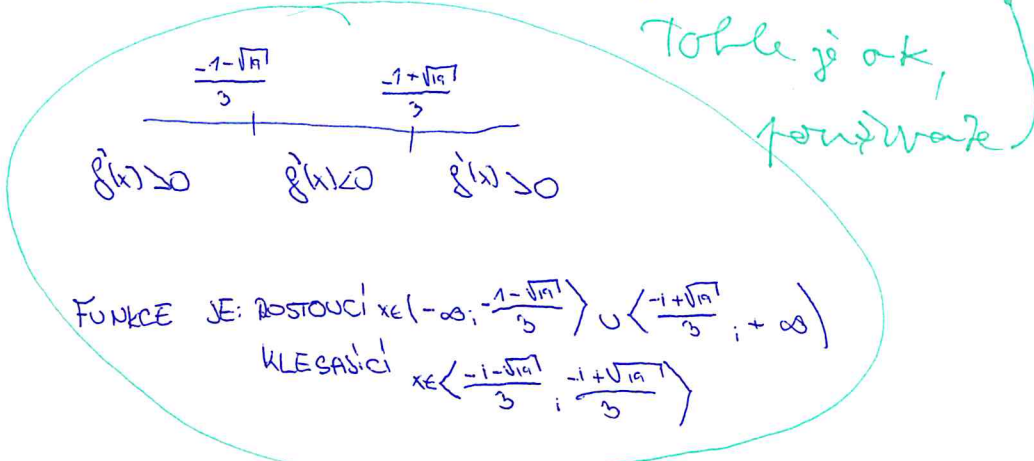 Tohle je ok,
používáte
-1-√19/3 -1+√19/3
g'(x)>0 g'(x)<0 g'(x)>0
FUNKCE JE: ROSTOUCÍ x∈(-∞; -1-√19/3⟩ ∪ ⟨-1+√19/3; +∞)
KLESAJÍCÍ x∈⟨-1-√19/3; -1+√19/3⟩